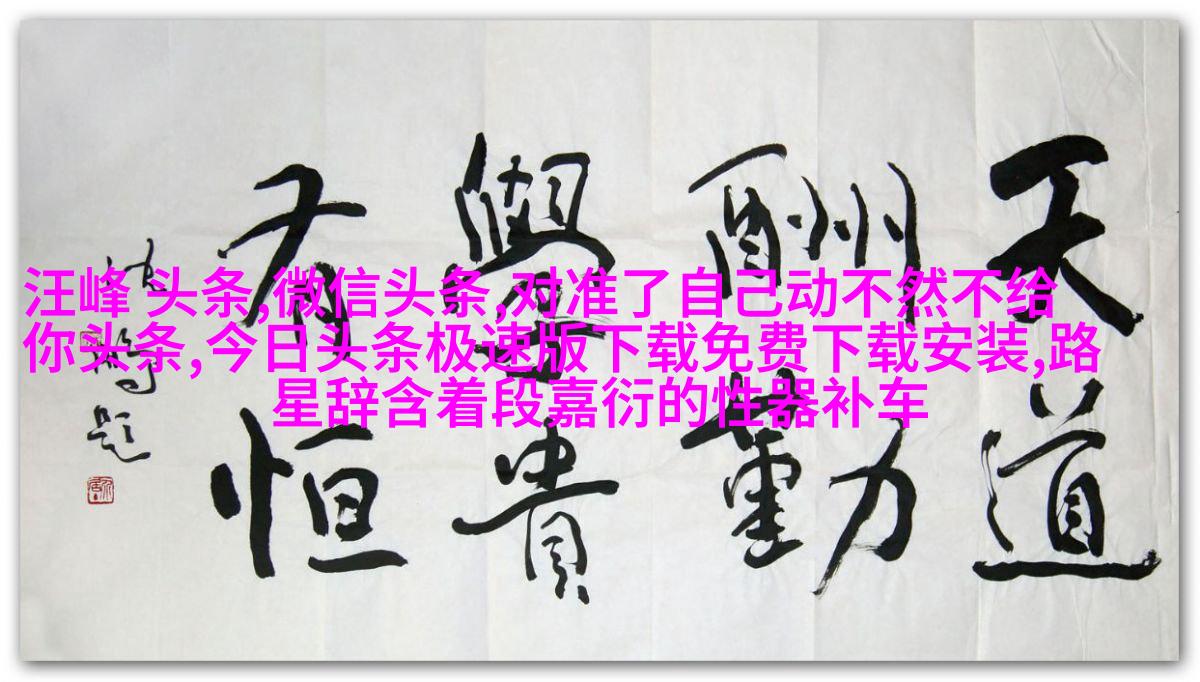 汪峰 头条,微信头条,对准了自己动不然不给
你头条,今日头条极速版下载免费下载安装,路
星辞含着段嘉衍的性器补车
天道
酬勤
學貴
有恒
沈鹏题